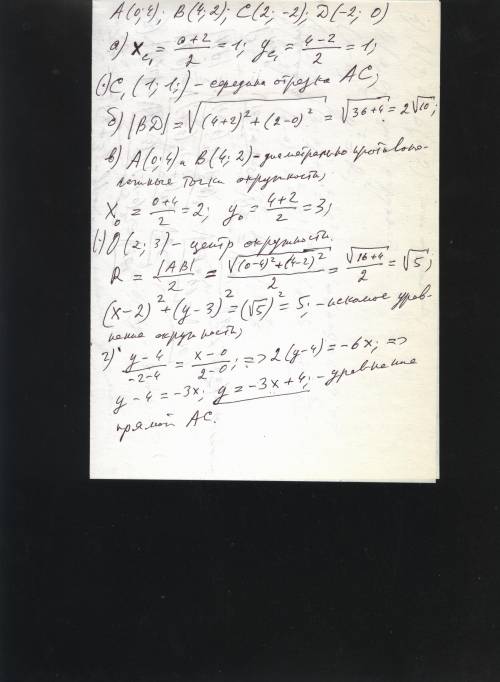 A(0;4); B(4;2); C(2;-2); D(-2; 0)
a) x_{C_1} = \frac{0+2}{2} = 1; y_{C_1} = \frac{4-2}{2} = 1;
(·) C_1 (1; 1;) - середина отрезка AC;
б) |BD| = \sqrt{(4+2)^2 + (2-0)^2} = \sqrt{36+4} = 2\sqrt{10};
в) A(0;4) и B(4;2) - диаметрально противопо-
ложные точки окружности;
x_0 = \frac{0+4}{2} = 2; y_0 = \frac{4+2}{2} = 3;
(·) O(2; 3) - центр окружности.
R = \frac{|AB|}{2} = \frac{\sqrt{(0-4)^2+(4-2)^2}}{2} = \frac{\sqrt{16+4}}{2} = \sqrt{5};
(x-2)^2 + (y-3)^2 = (\sqrt{5})^2 = 5; - искомое урав-
нение окружности;
г) \frac{y-4}{-2-4} = \frac{x-0}{2-0}; => 2(y-4) = -6x; =>
y-4 = -3x; y = -3x+4; - уравнение
прямой AC.